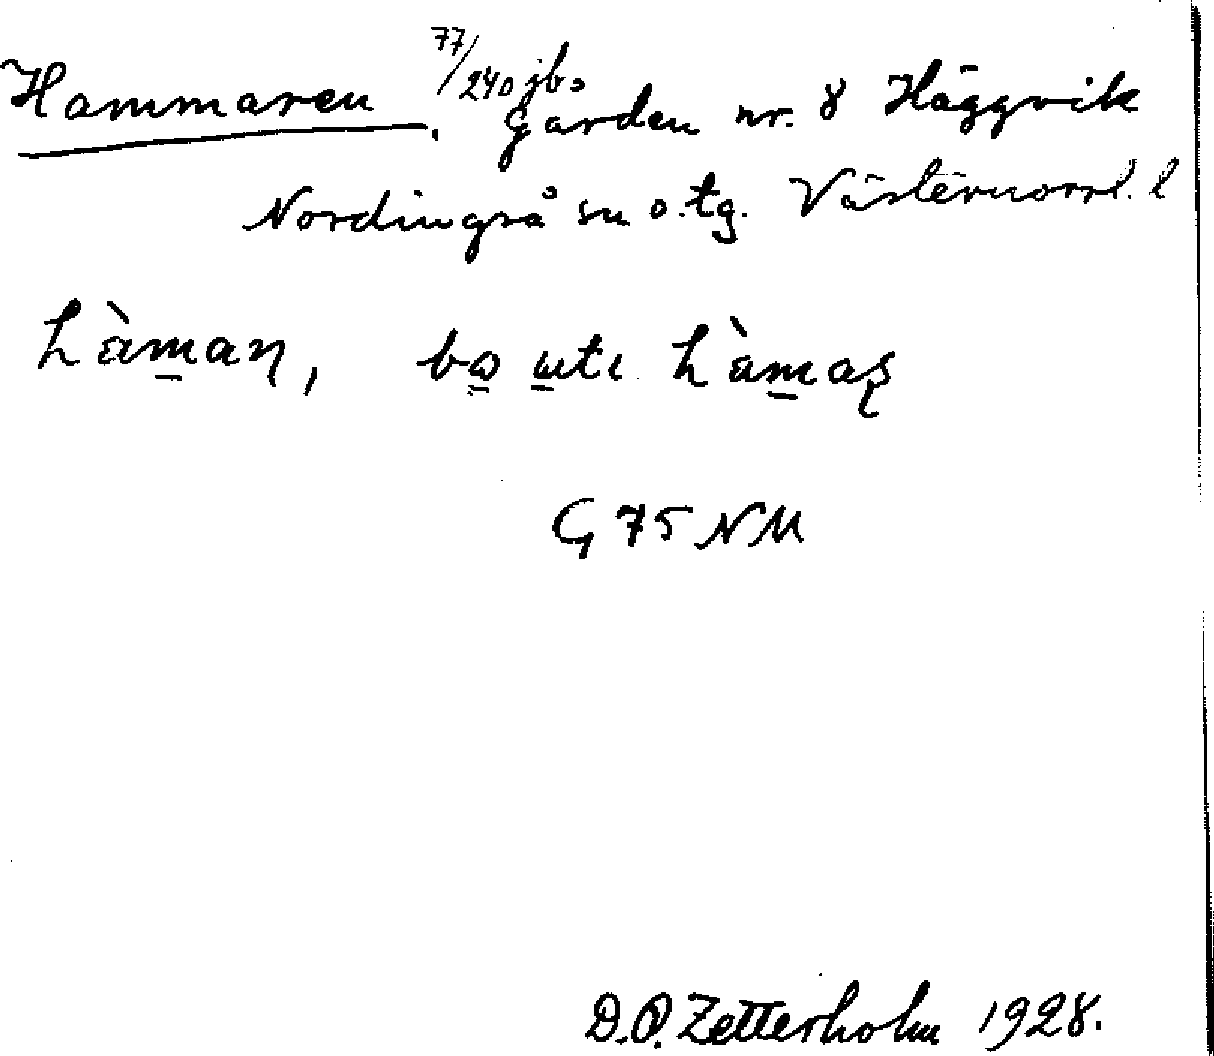 Hammaren. 77/240 jbs Gården nr. 8 Häggvik
Nordingrå sn o. tg. Västernorrl. l
hàm̲aṇ, bo̲ u̲ti hàm̲aṣ
G 75 NM
D.O. Zetterholm 1928.